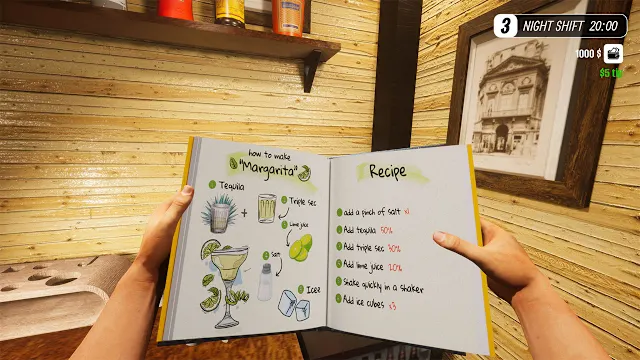 3 NIGHT SHIFT 20:00
1000 $
$5 tip
how to make
"Margarita"
Tequila
+
Triple sec
Lime juice
Salt
Icee
Recipe
add a pinch of salt x1
Add tequila 50%
Add triple sec 30%
Add lime juice 20%
Shake quickly in a shaker
Add ice cubes x3